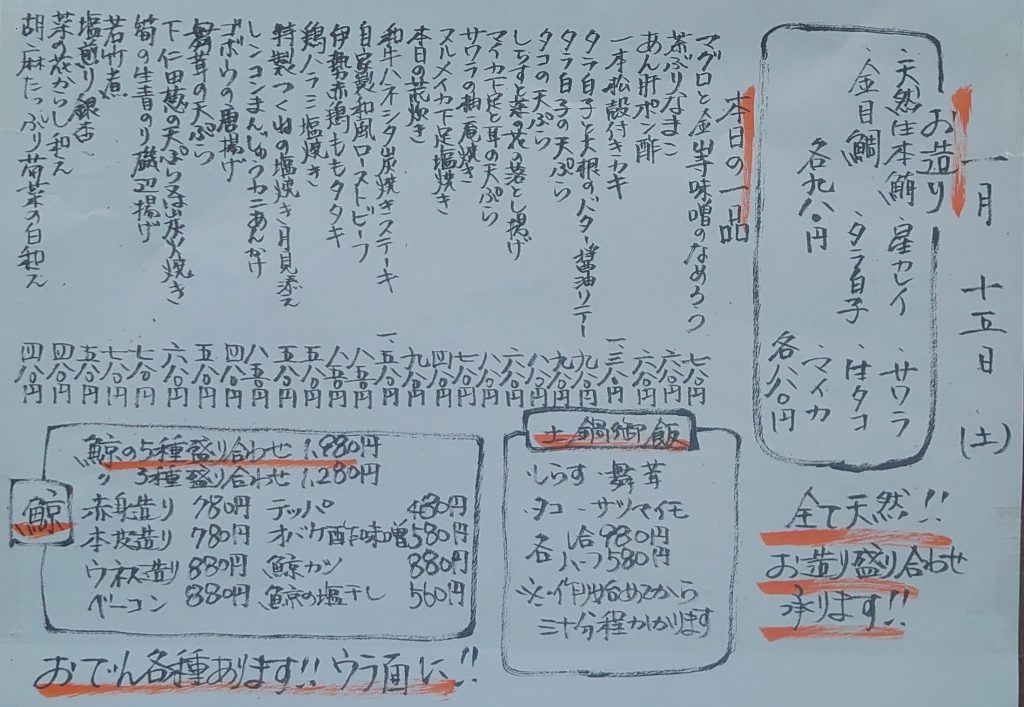 一月 十五日(土)
お造り
・天然生本鮪 ・星カレイ ・サワラ
・金目鯛 ・タラ白子 ・生タコ
・マイカ
各九八〇円 各八八〇円
全て天然!!
お造り盛り合わせ
承ります!!
本日の一品
マグロと金山寺味噌のなめろう 七八〇円
茶ぶりなまこ 六八〇円
あん肝ポン酢 六八〇円
一本松殻付きカキ 一、三八〇円
タラ白子と大根のバター醤油ソテー 九八〇円
タラ白子の天ぷら 九八〇円
タコの天ぷら 八八〇円
しらすと菜の花の落とし揚げ 六八〇円
マイカ下足と耳の天ぷら 八八〇円
サワラの柚庵焼き 七八〇円
スルメイカ下足塩焼き 四八〇円
本日の荒炊き 九八〇円
和牛ハネシタ炭焼きステーキ 一、五八〇円
自家製和風ローストビーフ 八五〇円
伊勢赤鶏ももタタキ 八五〇円
鶏ハラミ塩焼き 五八〇円
特製つくねの塩焼き月見添え 五八〇円
レンコンまんじゅうカニあんかけ 八五〇円
ゴボウの唐揚げ 四八〇円
舞茸の天ぷら 五八〇円
下仁田葱の天ぷら又は炭火焼き 六八〇円
筍の生青のり磯辺揚げ 七八〇円
若竹煮 七八〇円
塩煎り銀杏 五八〇円
菜の花からし和え 四八〇円
胡麻たっぷり菊菜の白和え 四八〇円
土鍋御飯
・しらす ・舞茸
・タコ ・サツマイモ
各 一合980円
ハーフ580円
※作り始めてから
三十分程かかります
鯨
鯨の5種盛り合わせ 1,880円
〃 3種盛り合わせ 1,280円
赤身造り 780円 テッパ 480円
本皮造り 780円 オバケ酢味噌 580円
ウネス造り 880円 鯨カツ 880円
ベーコン 880円 鯨の塩干し 560円
おでん各種あります!! ウラ面に!!